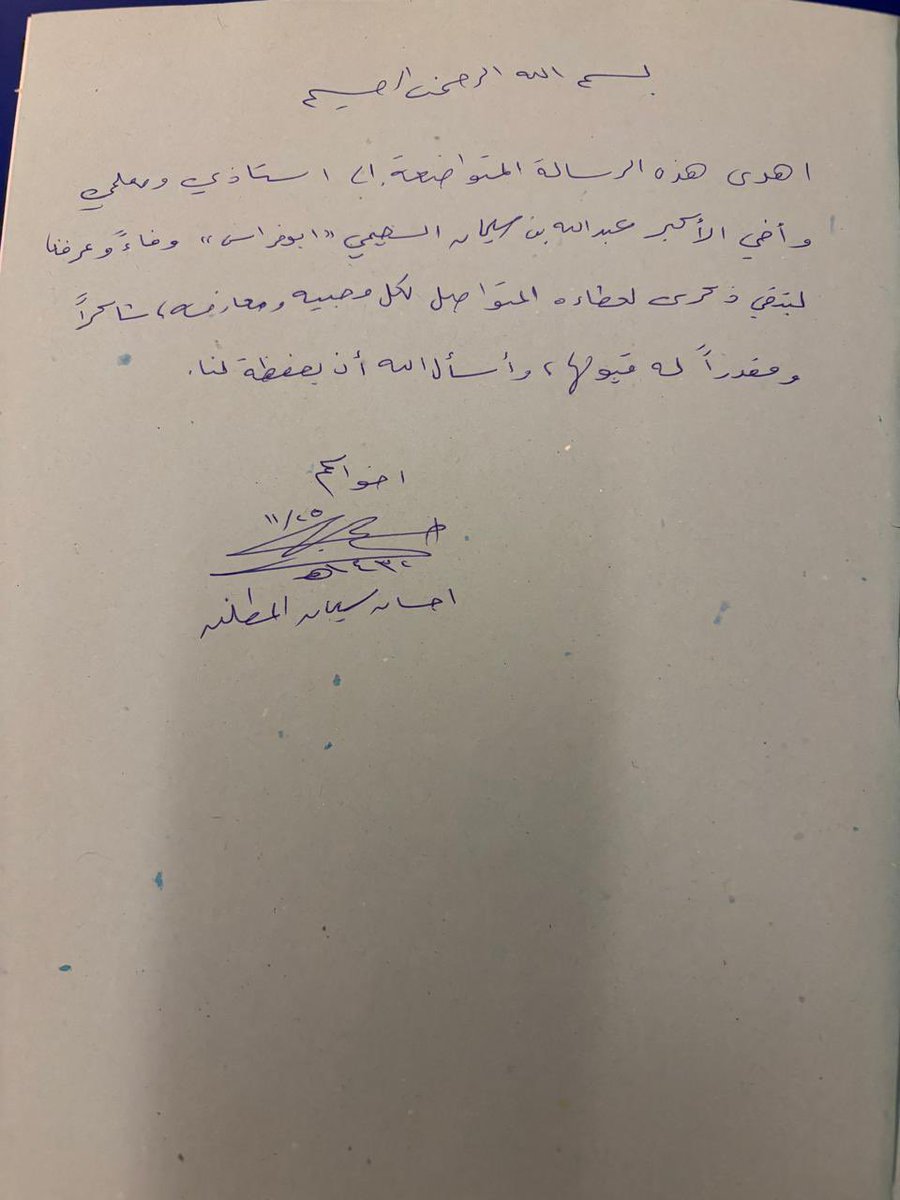 بسم الله الرحمن الرحيم
اهدى هذه الرسالة المتواضعة الى استاذي ومعلمي
وأخي الأكبر عبدالله بن سليمان السحيمي "ابوفراس" وفاءً وعرفنا
لبتقي ذكرى لعطاءه المتواصل لكل محبيه ومعارفه، شاكراً
ومقدراً له قبولها، وأسأل الله أن يحفظة لنا.
اخواكم
١١/٢٥
١٤٣٢هـ
احسان سليمان